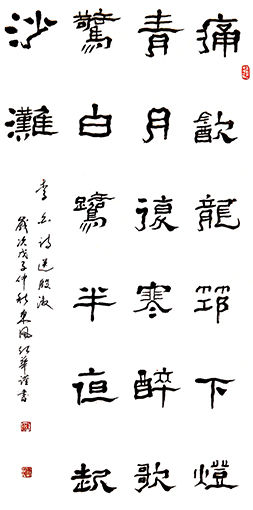 痛飲龍筇下燈
青月復寒醉歌
驚白鷺半夜起
沙灘
李白詩送殷淑
歲次戊子仲秋